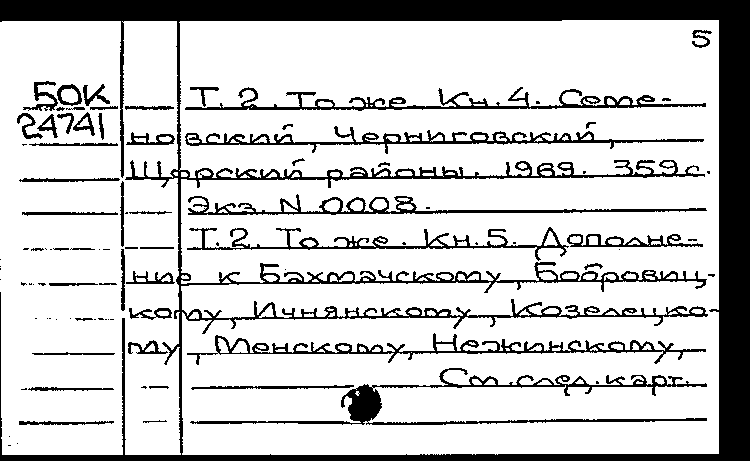 5
50К Т. 2. То же. Кн. 4. Семе-
24741 новский, Черниговский,
Щорский районы. 1969. 359 с.
Экз. N 0008.
Т. 2. То же. Кн. 5. Дополне-
ние к Бахмачскому, Бобровиц-
кому, Ичнянскому, Козелецко-
му, Менскому, Нежинскому,
См. след. карт.